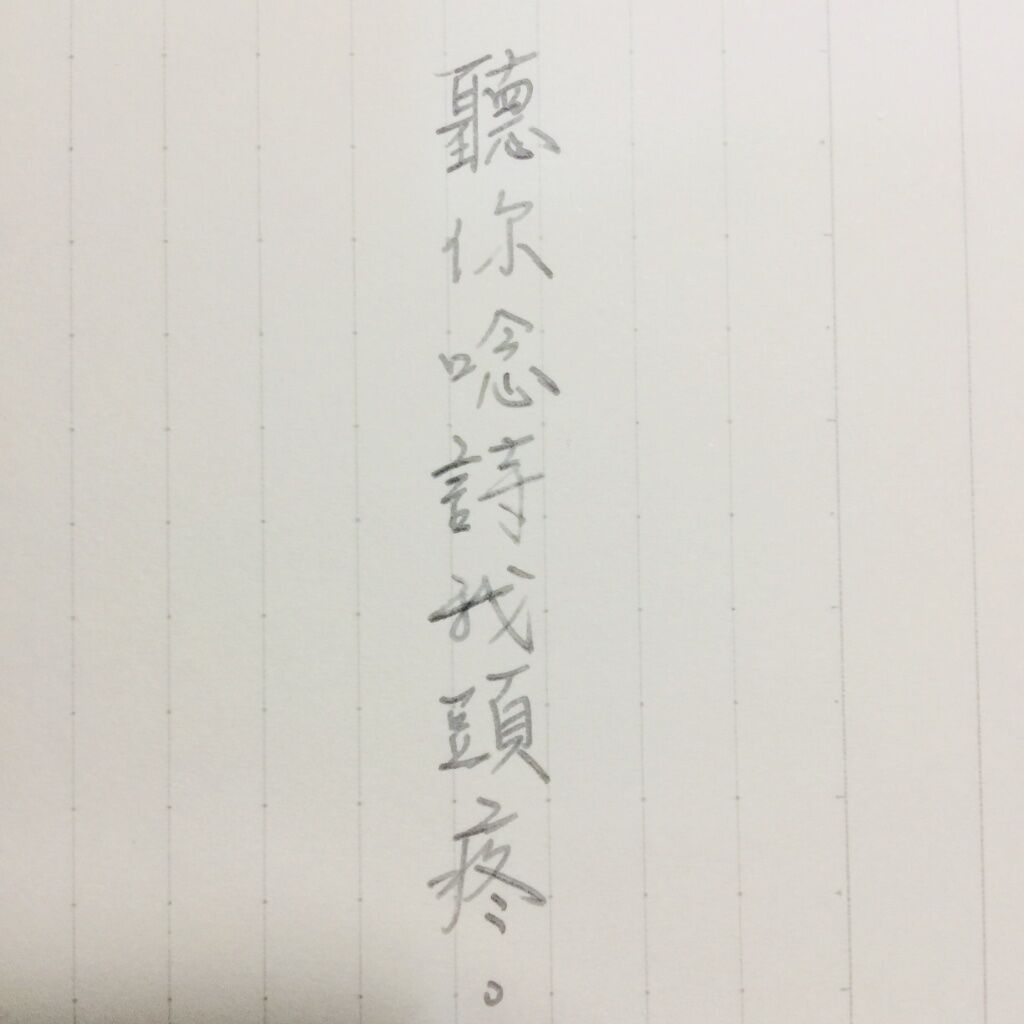 聽你唸詩我頭疼。